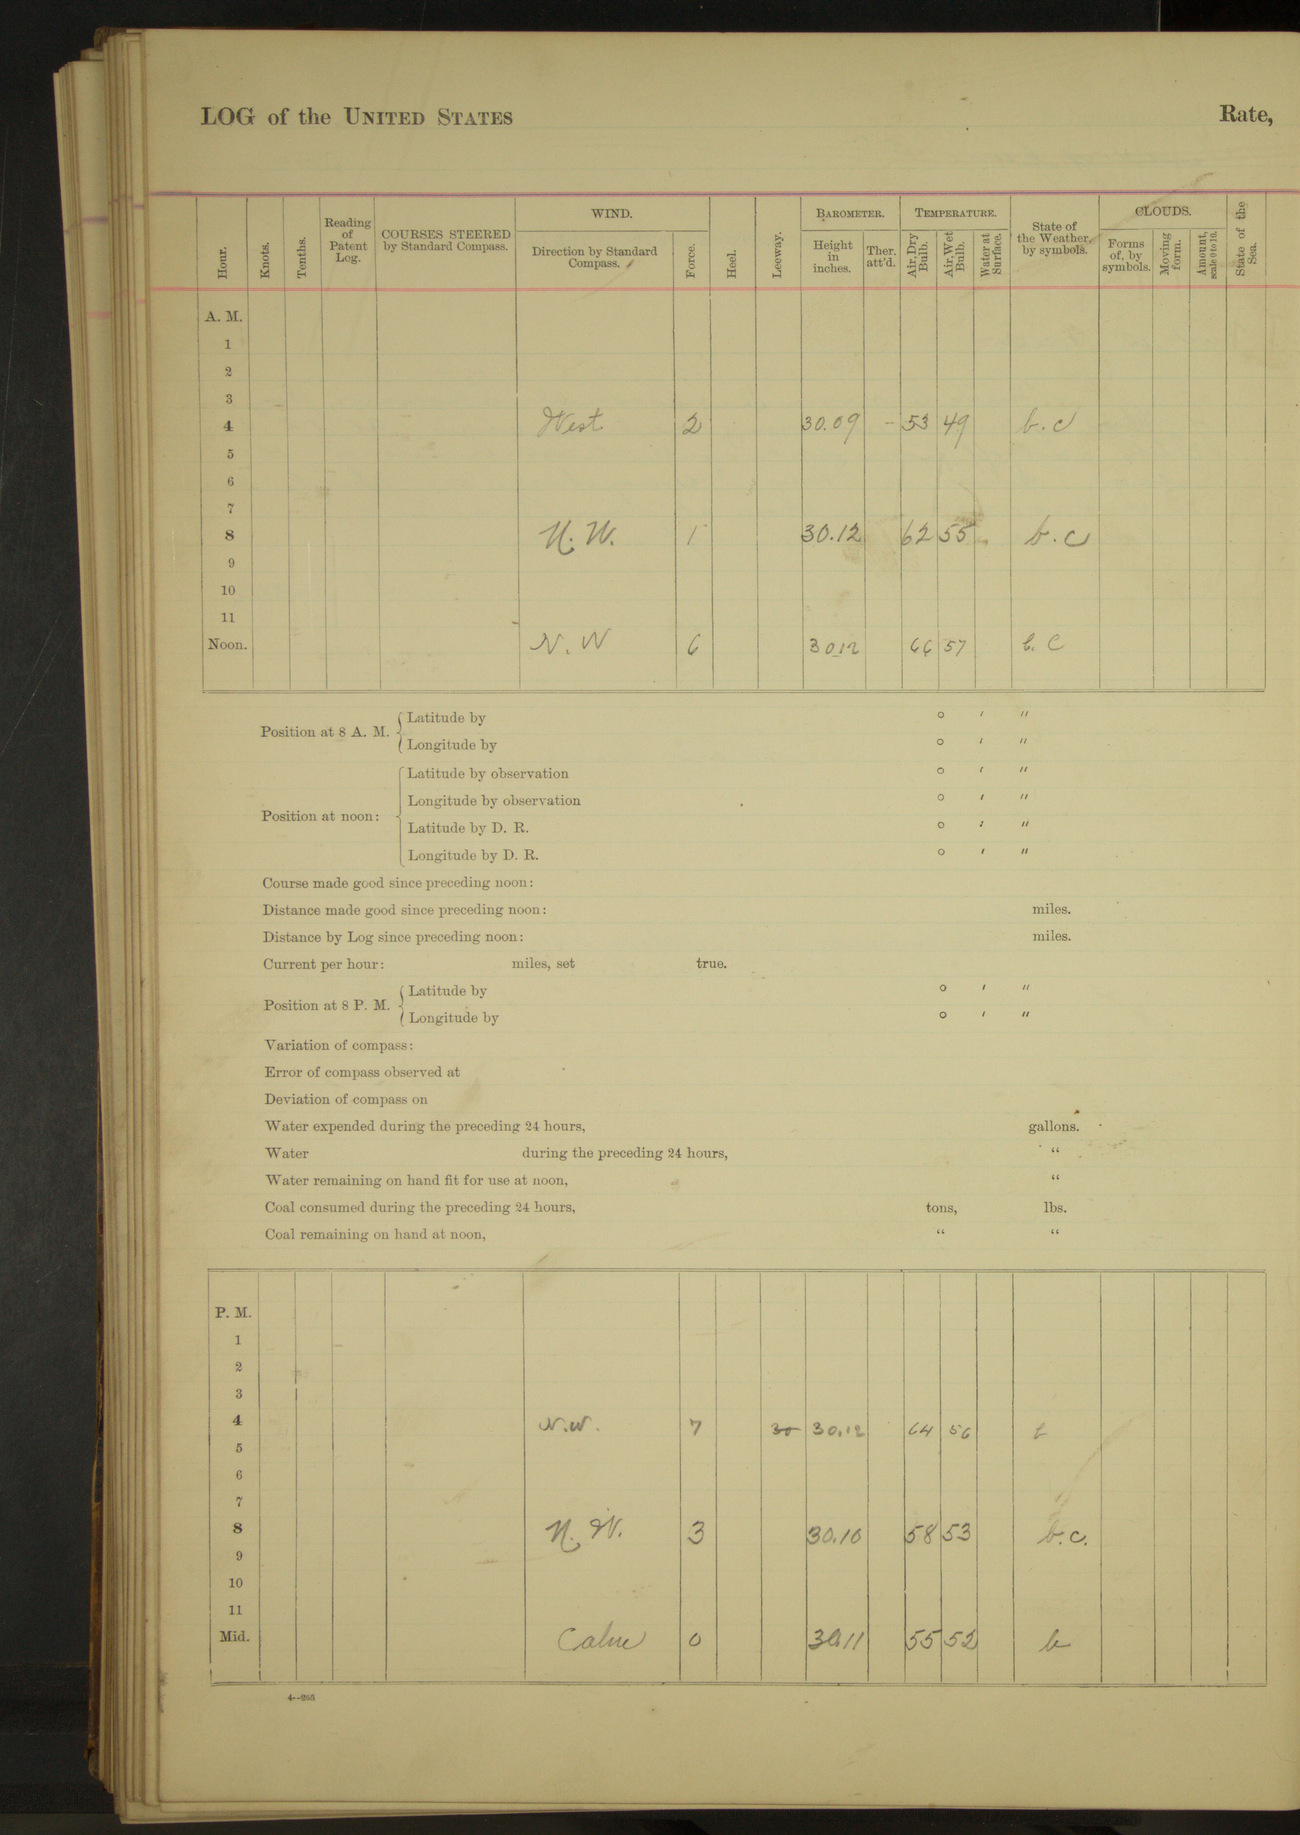 LOG of the UNITED STATES Rate,
Hour. Knots. Tenths. Reading of Patent Log. COURSES STEERED by Standard Compass. WIND. Direction by Standard Compass. Force. Heel. Leeway. BAROMETER. Height in inches. Ther. att'd. TEMPERATURE. Air, Dry Bulb. Air, Wet Bulb. Water at Surface. State of the Weather, by symbols. CLOUDS. Forms of, by symbols. Moving form. Amount, scale 0 to 10. State of the Sea.
A. M.
1
2
3
4 West 2 30.09 - 53 49 b.c
5
6
7
8 N.W. 1 30.12 62 55 b.c
9
10
11
Noon. N.W 6 30.12 66 57 b.c
Position at 8 A. M. Latitude by ° ′ ″
Longitude by ° ′ ″
Position at noon: Latitude by observation ° ′ ″
Longitude by observation ° ′ ″
Latitude by D. R. ° ′ ″
Longitude by D. R. ° ′ ″
Course made good since preceding noon:
Distance made good since preceding noon: miles.
Distance by Log since preceding noon: miles.
Current per hour: miles, set true.
Position at 8 P. M. Latitude by ° ′ ″
Longitude by ° ′ ″
Variation of compass:
Error of compass observed at
Deviation of compass on
Water expended during the preceding 24 hours, gallons.
Water during the preceding 24 hours, "
Water remaining on hand fit for use at noon, "
Coal consumed during the preceding 24 hours, tons, lbs.
Coal remaining on hand at noon, " "
P. M.
1
2
3
4 N.W. 7 30 30.12 64 56 b
5
6
7
8 N.W. 3 30.10 58 53 b.c.
9
10
11
Mid. Calm 0 30.11 55 52 b
4--265